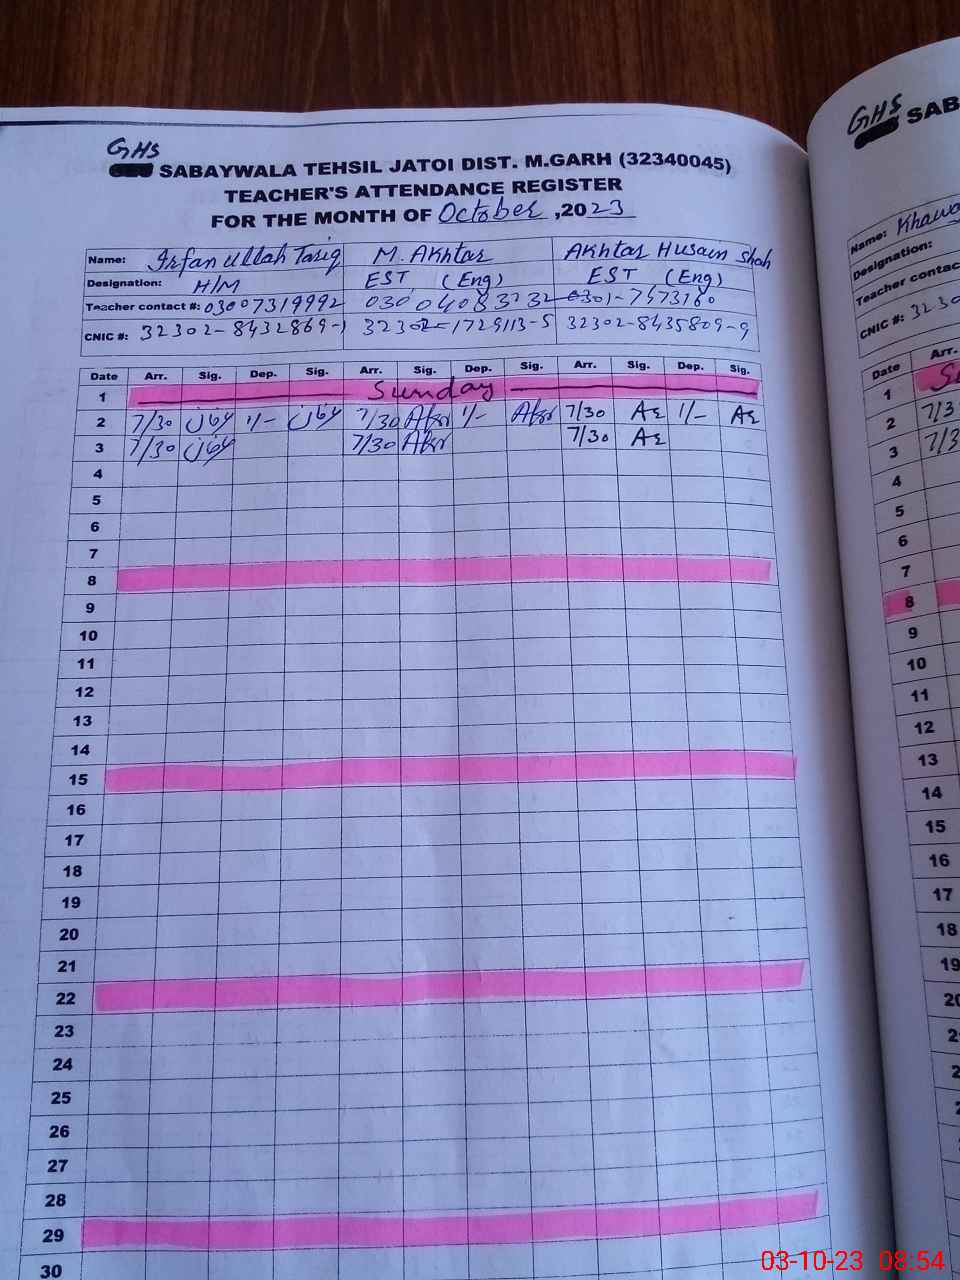 GHS
SABAYWALA TEHSIL JATOI DIST. M.GARH (32340045)
TEACHER'S ATTENDANCE REGISTER
FOR THE MONTH OF October ,2023
Name: Irfan ullah Tariq M. Akhtar Akhtar Husain Shah
Designation: H/M EST (Eng) EST (Eng)
Teacher contact #: 03007319992 03004083232 0301-7573160
CNIC #: 32302-8432869-1 32302-1729113-5 32302-8435809-9
Date Arr. Sig. Dep. Sig. Arr. Sig. Dep. Sig. Arr. Sig. Dep. Sig.
1 Sunday
2 7/30 1/- 7/30 1/- 7/30 1/-
3 7/30 7/30 7/30
4
5
6
7
8
9
10
11
12
13
14
15
16
17
18
19
20
21
22
23
24
25
26
27
28
29
30
GHS SAB
Name: Khawa
Designation:
Teacher contac
CNIC #: 3230
Date Arr.
1
2 7/3
3 7/3
4
5
6
7
8
9
10
11
12
13
14
15
16
17
18
19
03-10-23 08:54